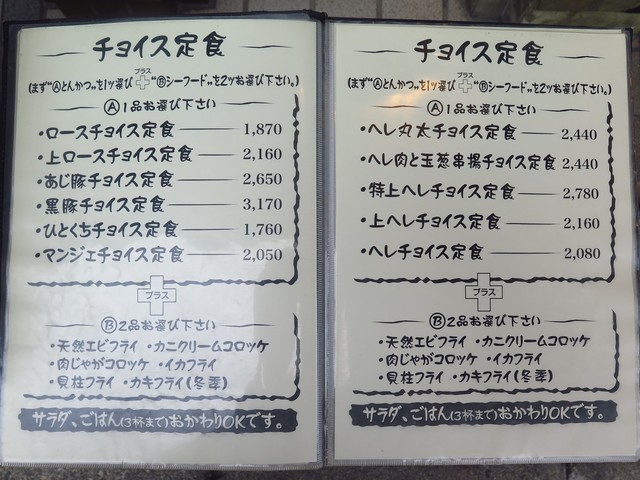 チョイス定食
(まず"Ⓐとんかつ"を1ツ選び プラス "Ⓑシーフード"を2ツお選び下さい。)
Ⓐ1品お選び下さい
・ロースチョイス定食 1,870
・上ロースチョイス定食 2,160
・あじ豚チョイス定食 2,650
・黒豚チョイス定食 3,170
・ひとくちチョイス定食 1,760
・マンジェチョイス定食 2,050
プラス
Ⓑ2品お選び下さい
・天然エビフライ ・カニクリームコロッケ
・肉じゃがコロッケ ・イカフライ
・貝柱フライ ・カキフライ(冬季)
サラダ、ごはん(3杯まで)おかわりOKです。
チョイス定食
(まず"Ⓐとんかつ"を1ツ選び プラス "Ⓑシーフード"を2ツお選び下さい。)
Ⓐ1品お選び下さい
・ヘレ丸太チョイス定食 2,440
・ヘレ肉と玉葱串揚チョイス定食 2,440
・特上ヘレチョイス定食 2,780
・上ヘレチョイス定食 2,160
・ヘレチョイス定食 2,080
プラス
Ⓑ2品お選び下さい
・天然エビフライ ・カニクリームコロッケ
・肉じゃがコロッケ ・イカフライ
・貝柱フライ ・カキフライ(冬季)
サラダ、ごはん(3杯まで)おかわりOKです。